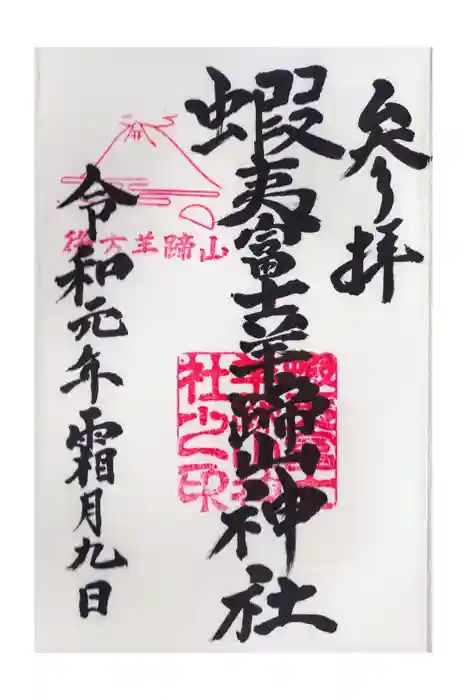 参拝
蝦夷富士羊蹄山神社
後方羊蹄山
令和元年霜月九日